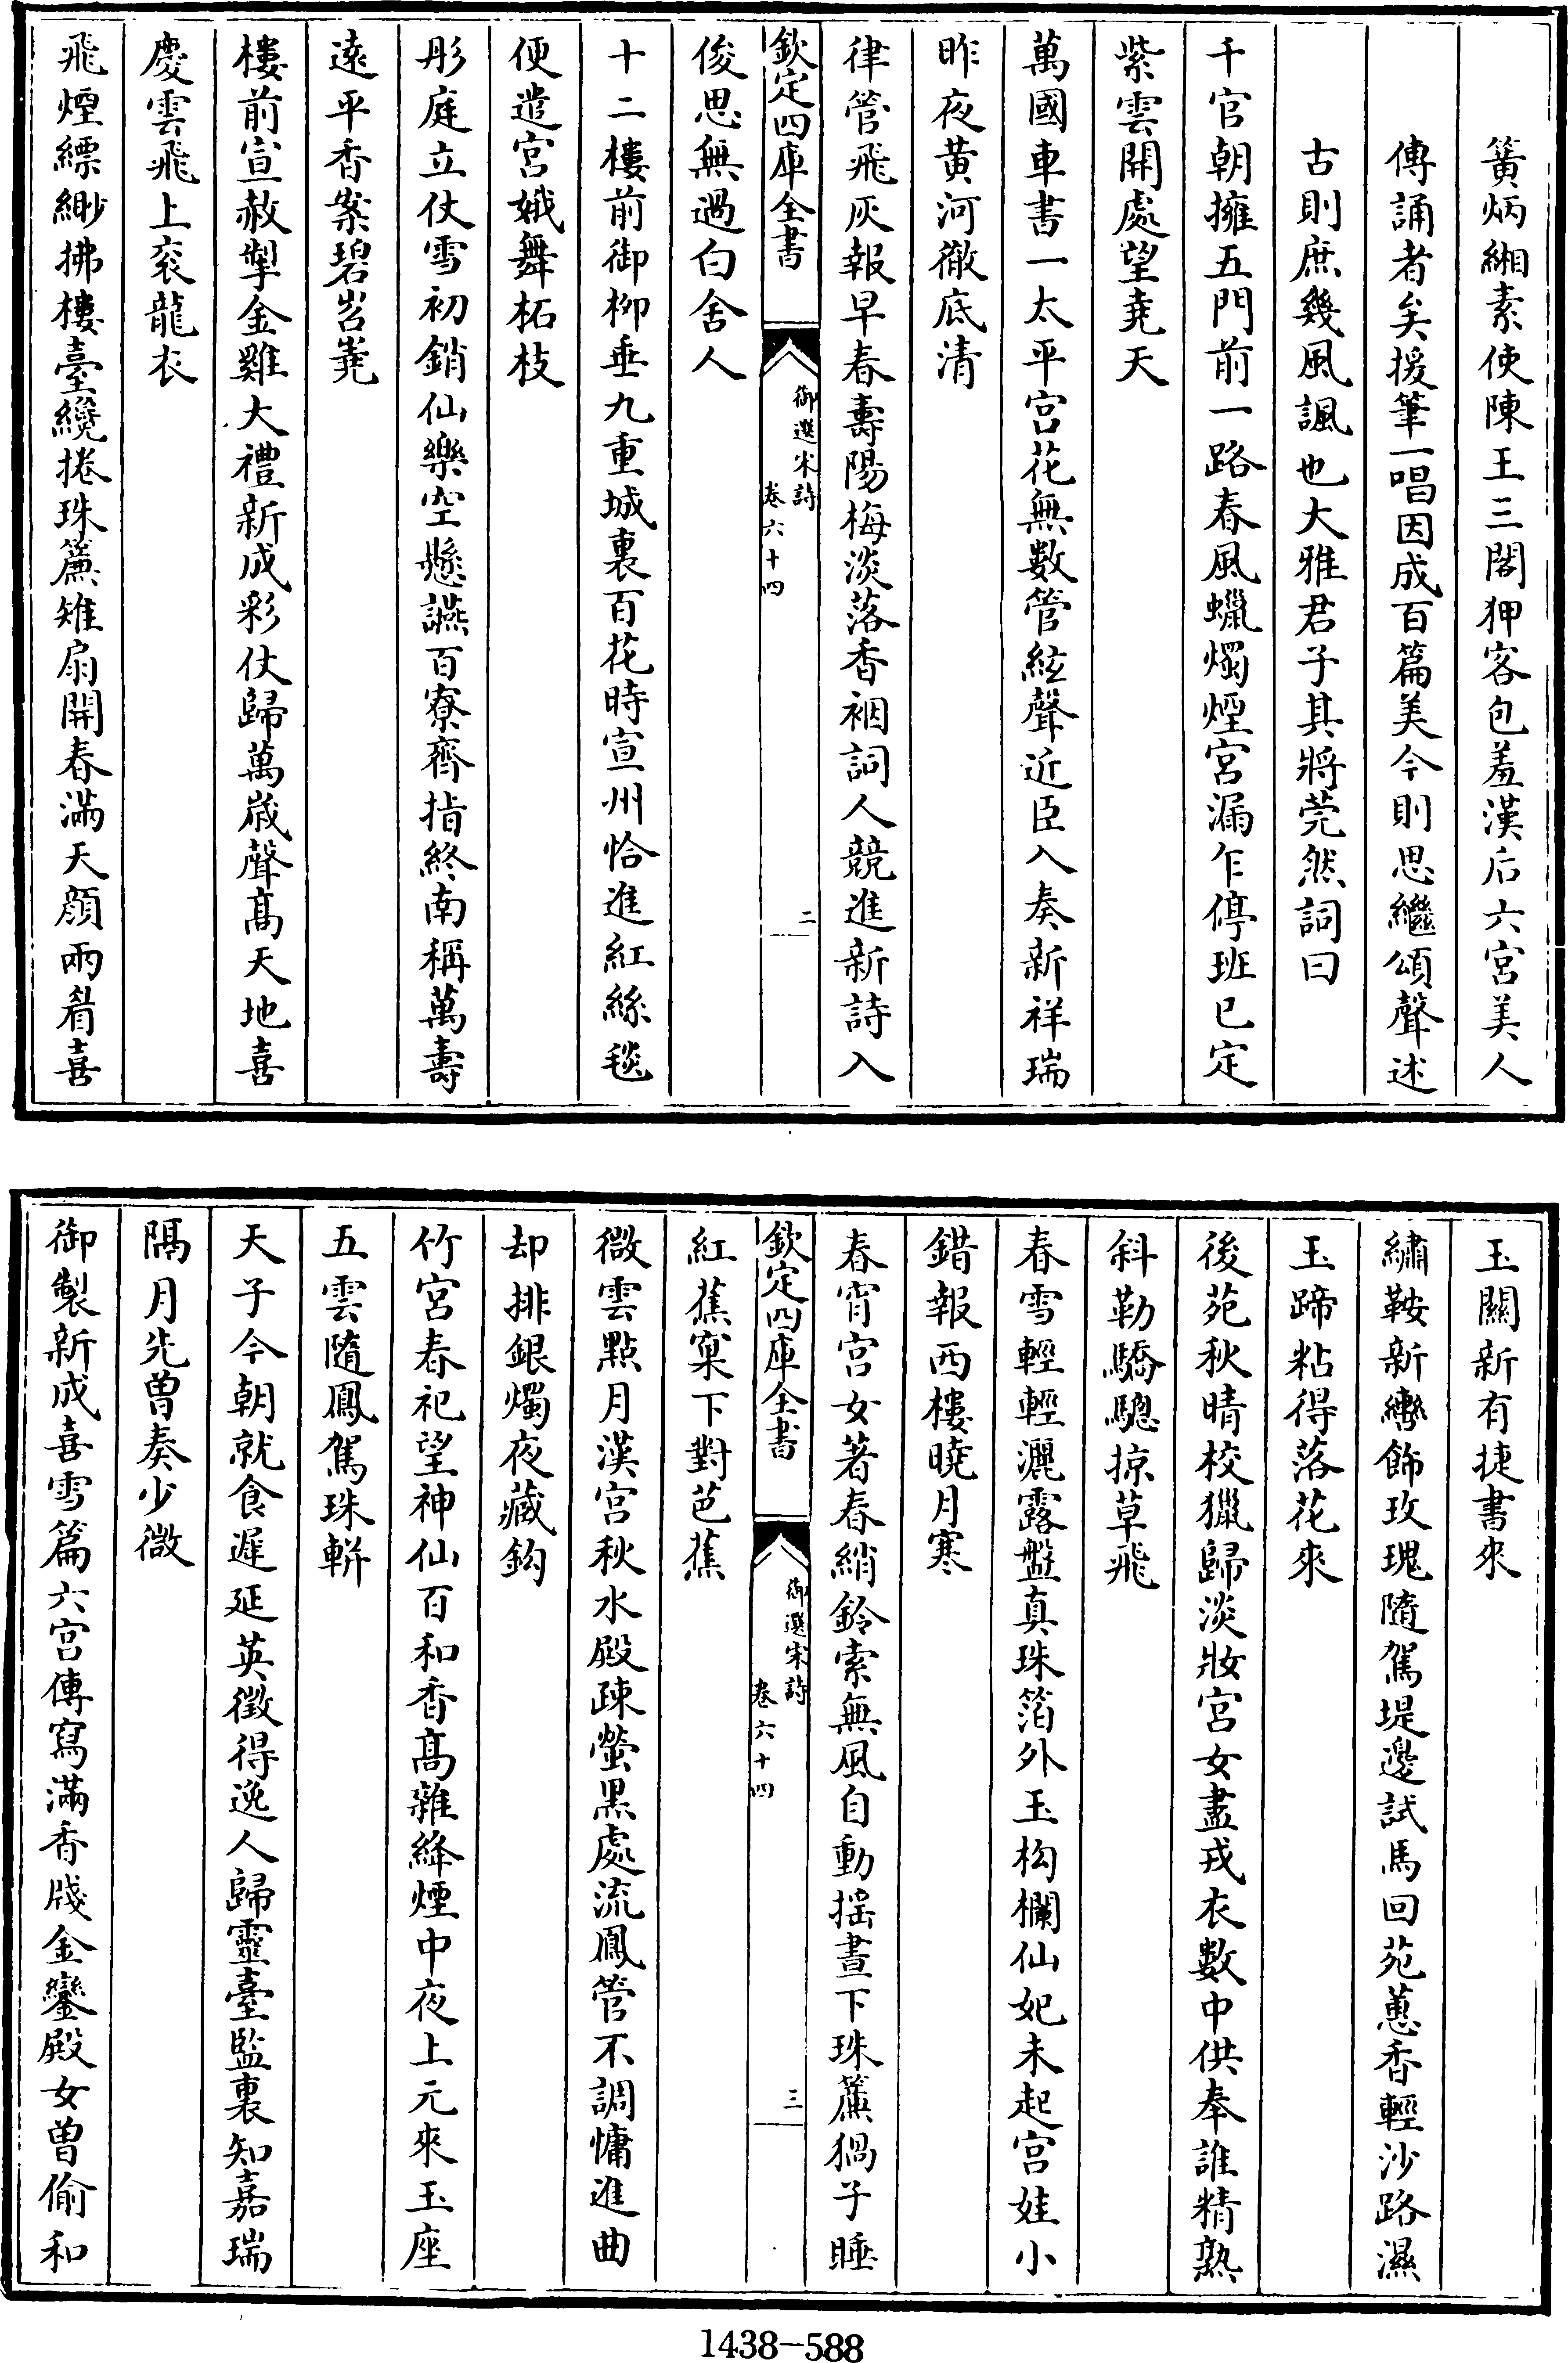 簧炳緗素使陳王三閣狎客包羞漢后六宮美人
傳誦者矣援筆一唱因成百篇美今則思繼頌聲述
古則庶幾風諷也大雅君子其將莞然詞曰
千官朝擁五門前一路春風蠟燭煙宮漏乍停班已定
紫雲開處望堯天
萬國車書一太平宮花無數管絃聲近臣入奏新祥瑞
昨夜黃河徹底清
律管飛灰報早春壽陽梅淡落香裀詞人競進新詩入
欽定四庫全書
御選宋詩
卷六十四
二
俊思無過白舍人
十二樓前御柳垂九重城裏百花時宣州恰進紅絲毯
便遣宮娥舞柘枝
彤庭立仗雪初銷仙樂空懸讌百寮齊指終南稱萬壽
遠平香案碧岧嶤
樓前宣赦掣金雞大禮新成彩仗歸萬歲聲高天地喜
慶雲飛上衮龍衣
飛煙縹緲拂樓臺纔捲珠簾雉扇開春滿天顏兩眉喜
玉關新有捷書來
繡鞍新轡飾玫瑰隨駕堤邊試馬回苑蕙香輕沙路濕
玉蹄粘得落花來
後苑秋晴校獵歸淡妝宮女盡戎衣數中供奉誰精熟
斜勒驕驄掠草飛
春雪輕輕灑露盤真珠箔外玉枸欄仙妃未起宮娃小
錯報西樓曉月寒
春宵宮女著春綃鈴索無風自動搖晝下珠簾猧子睡
欽定四庫全書
御選宋詩
卷六十四
三
紅蕉窠下對芭蕉
微雲點月漢宮秋水殿疎螢黑處流鳳管不調慵進曲
却排銀燭夜藏鈎
竹宮春祀望神仙百和香高雜絳煙中夜上元來玉座
五雲隨鳳駕珠軿
天子今朝就食遲延英徵得逸人歸靈臺監裏知嘉瑞
隔月先曾奏少微
御製新成喜雪篇六宮傳寫滿香牋金鑾殿女曾偷和
1438-588